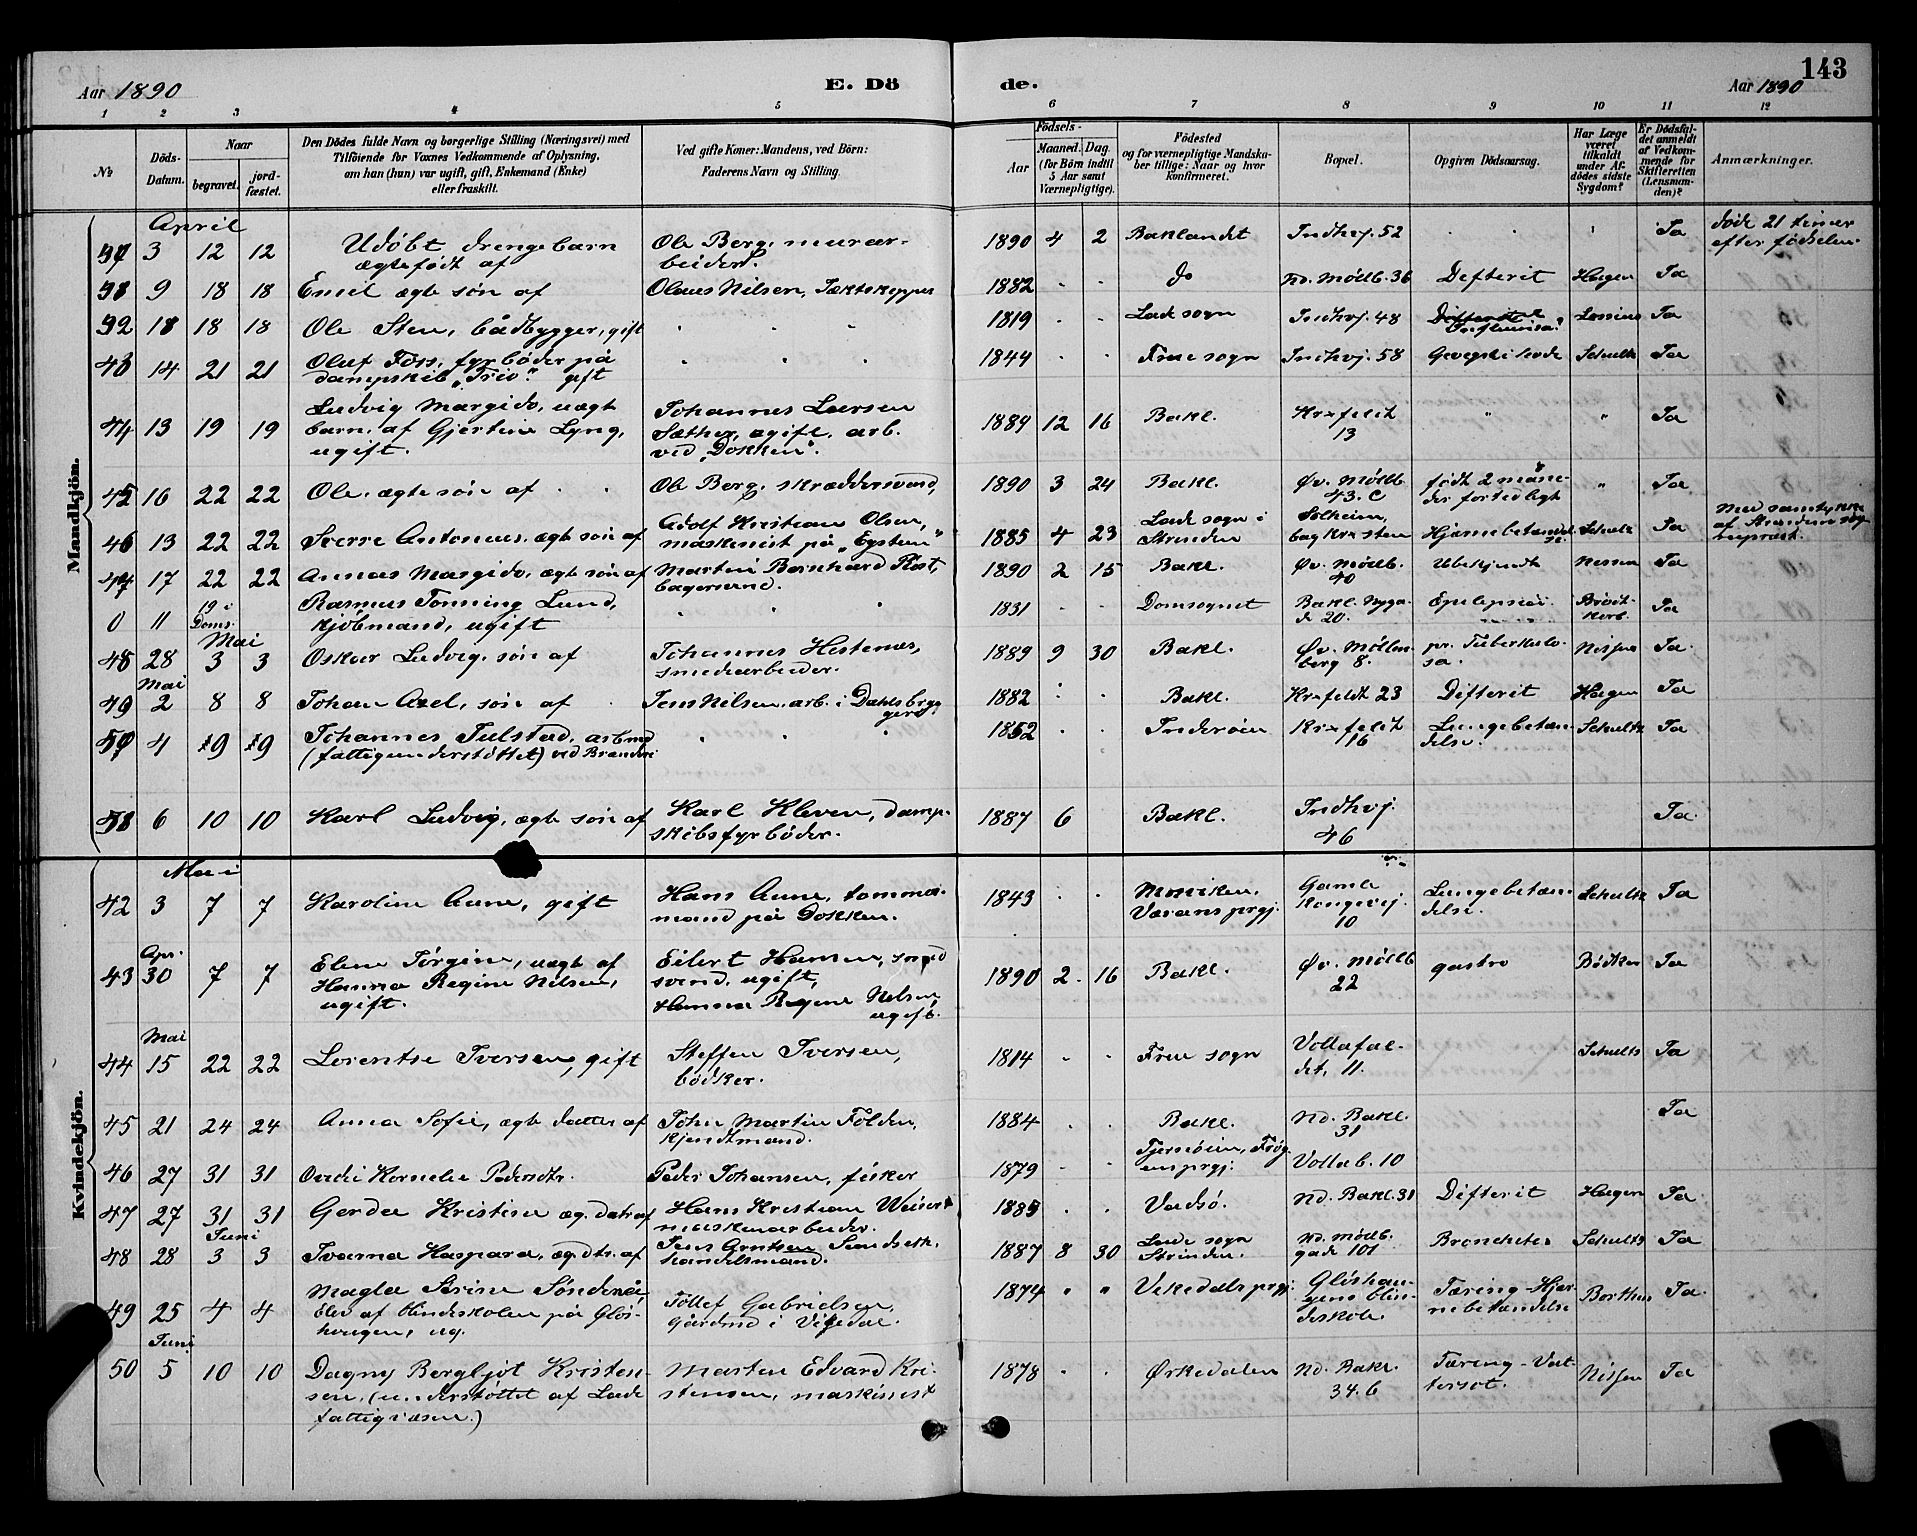 143
Aar 1890 E. Dö de. Aar 1890
1 2 3 4 5 6 7 8 9 10 11 12
No. Döds-Datum. Naar begravet. jord-fæstet. Den Dödes fulde Navn og borgerlige Stilling (Næringsvei) med Tilföiende for Voxnes Vedkommende af Oplysning, om han (hun) var ugift, gift, Enkemand (Enke) eller fraskilt. Ved gifte Koner: Mandens, ved Börn: Faderens Navn og Stilling. Födsels- Aar Maaned. Dag. (for Börn indtil 5 Aar samt Værnepligtige). Födested og for værnepligtige Mandska-ber tillige: Naar og hvor konfirmeret. Bopæl. Opgiven Dödsaarsag. Har Læge været tilkaldt under Af-dödes sidste Sygdom? Er Dödsfal-det anmeldt af Vedkom-mende for Skifteretten (Lensman-den)? Anmærkninger.
Mandkjön.
April
3 12 12 Udöbt drengebarn ægtefödt af Ole Berg, murar-beider. 1890 4 2 Baklandet Indhvj. 52 Ja döde 21 timer efter födselen.
9 18 18 Emil ægte sön af Olaus Nilsen, 1882 do Nd. Möllb. 36 Defterit Hagen Ja
18 18 18 Ole Sten, bådbygger, gift 1819 Lade sogn Indhvj. 48 Ja
43 14 21 21 Oluf Foss, fyrböder på dampskib "Trio". gift 1844 Frue sogn Indhvj. 58 Schultz Ja
44 13 19 19 Ludvig Margido, uægt barn, af Gjertine Lyng, ugift. Johannes Larsen Sæther, ugift, arb. ved "Dokken". 1889 12 16 Bakl. Kr. felit 13 " " Ja
45 16 22 22 Ole, ægte sön af Ole Berg, skræddersvend, 1890 3 24 Bakl. Öv. Möllb. 43. C födt 2 måne-der fortidligt " Ja
46 13 22 22 Sverre Antoneus, ægte sön af Adolf Kristian Olsen, maskinist på "Eystein" 1885 4 23 Lade sogn i Strinden Solheim, bag Kr. sten Hjernebetændelse Schultz Ja Med samtykke af Strindens sognepræst.
47 17 22 22 Annas Margido, ægte sön af Martin Bernhard Kost, bagersvend. 1890 2 15 Bakl. Öv. Möllb. 40 Ubekjendt Nissen Ja
0 11 19 i Doms. Rasmus Tonning Lund, kjöbmand, ugift 1831 Domsognet Bakl. Nyga-de 20. Epilepsi Ja
Mai
48 28 3 3 Oskar Ludvig, sön af Johannes Hestenes, smedarbeider. 1889 9 30 Bakl. Öv. Möllen-berg 8. Tuberkulo-sa. Nissen Ja
Mai
49 2 8 8 Johan Axel, sön af Jens Nilsen, arb. i Dahls bryggeri 1882 Bakl. Kr. feldt 23 Difterit Hagen Ja
4 9 9 Johannes Julstad, arbmd (fattigunderstöttet) ved Brænderi 1852 Inderöen Kr. felit 16 Lungebetæn-delse. Schultz Ja
6 10 10 Karl Ludvig, ægte sön af Karl Kleven, damp-skibsfyrböder. 1887 6 Bakl. Indhvj. 46 Ja
Kvindekjön.
Mai
42 3 7 7 Karoline Aune, gift Hans Aune, tömmer-mand på Dokken. 1843 Værans prgj. Gamle Kongevej. 10 Lungebetæn-delse. Schultz Ja
Apr.
43 30 7 7 Eline Jörgine, uægte af Hanna Regine Nilsen, ugift. Eilert Hansen, smed svend, ugift, Hanna Regine Nilsen ugift. 1890 2 16 Bakl. Öv. Möllb 22 gastro Bödtker Ja
Mai
44 15 22 22 Lorentse Iversen, gift Steffen Iversen, bödker. 1814 Frue sogn Vollafal-det, 11. Schultz Ja
45 21 24 24 Anna Sofie, ægte datter af John Martin Folden, kjendtmand. 1884 Bakl. Nd. Bakl. 31 Ja
46 27 31 31 Ovidi Kornelie Pedersdtr. Peder Johansen, fisker 1879 Vollab. 10
47 27 31 31 Gerda Kristine æg. datr af Hans Kristian Weiser maskinarbeider. 1885 Vadsö. Nd. Bakl. 31 Difterit Hagen Ja
Juni
48 28 3 3 Ivarna Kaspara, æg. dtr. af Jens Arntsen Sandseth. handelsmand. 1887 8 30 Lade sogn Strinden. Nd. Möllb. gade 101 Bronchites Schultz Ja
49 25 4 4 Magla Serine Söndenå, Elev af blindeskolen på Glös-haugen, ug. Tollef Gabrielsen, Gårdmd i Vikedal. 1874 " " Vikedals prgj. Glöshau-gens blin-deskole. Tæring-Hjer-nebetændelse Borthen Ja
Juni
50 5 10 10 Dagny Bergljot Kristen-sen, (understöttet af Lade fattigvæsen.) Martin Edvard Kri-stensen, maskinist 1878 Örkedalen Nd. Bakl. 34. b Tæring-Vat-tersot. Nissen Ja